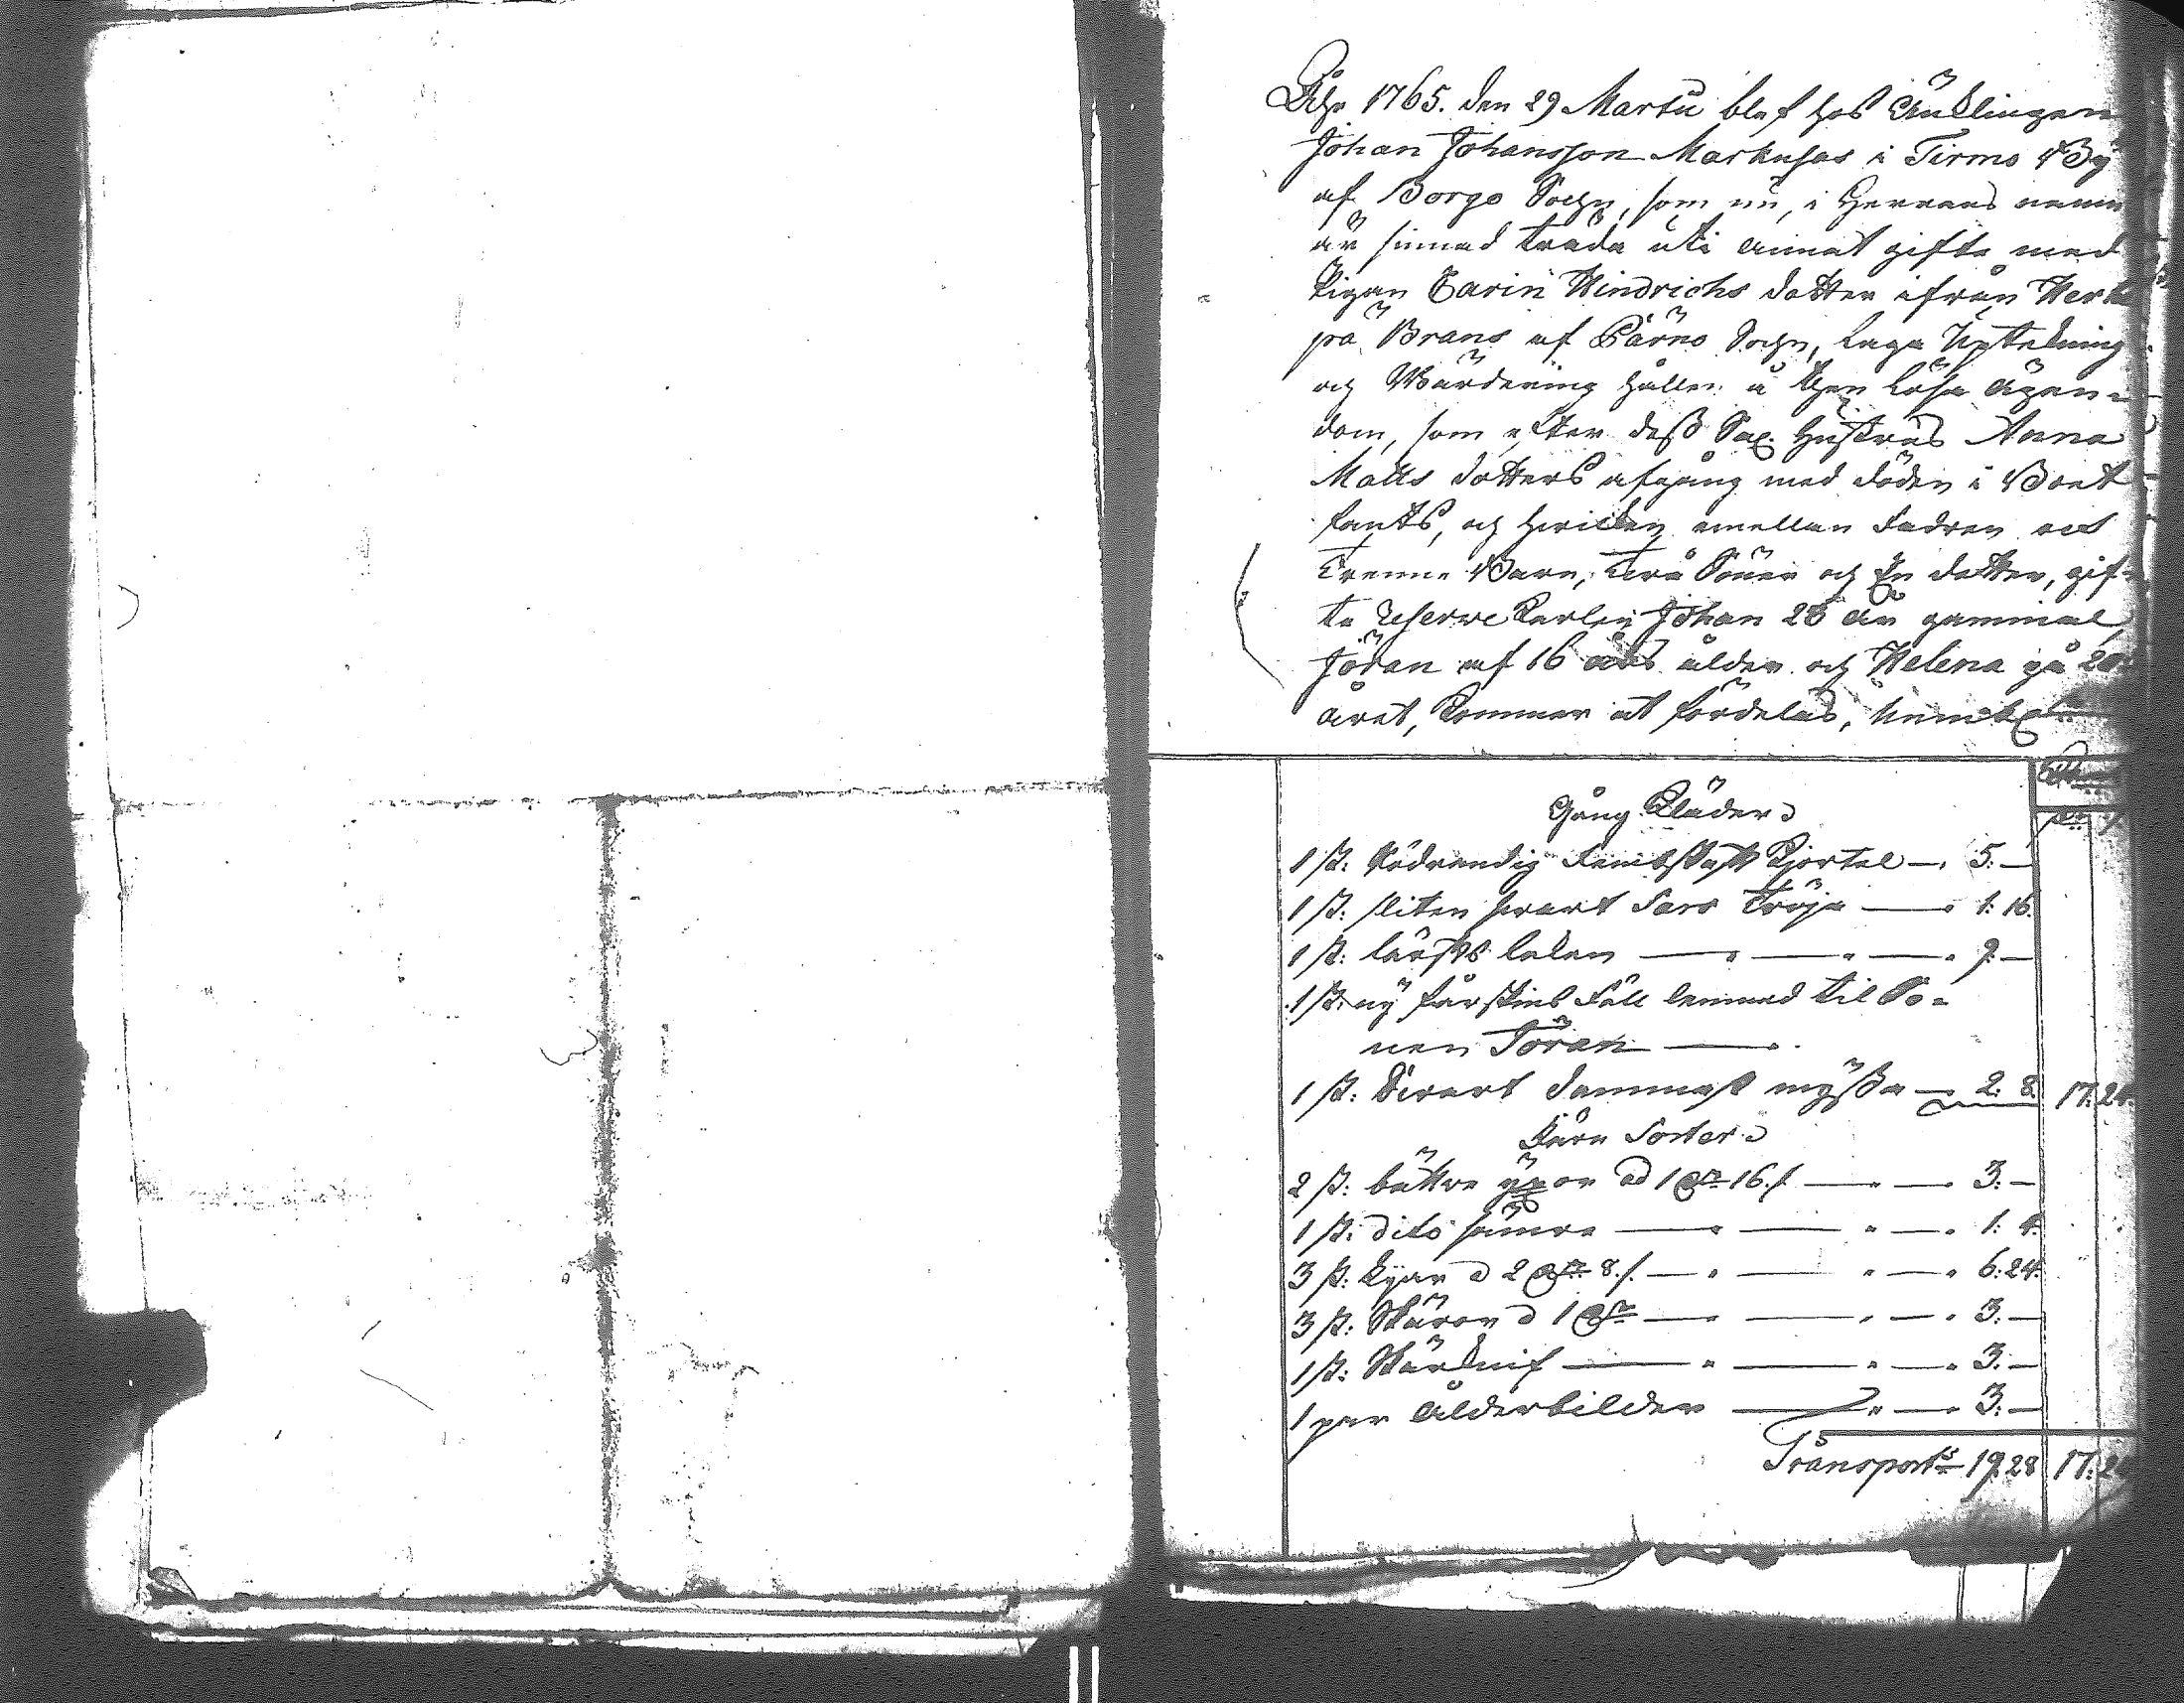 Åhr 1765. den 29 Martii blef hos Änklingen
Johan Johansson Markusas i Tirmo By
af Borgo Sochn, som nu, i Herrans namn
är sinnad träda uti annat gifte med
Pigan Carin Hindrichs dotter ifrån
på Brans af Pärno Sochn, laga Upteckning
och Wärdering hållen å then lösa ägen-
dom, som efter dess Sal. Hustrus Anna
Matts dotters afgång med döden i Boet
fants, och hvilken emellan Fadren och
Trenne Barn, twå Söner och En dotter, gif-
ta Reserve Karlen Johan 23 år gammal,
Jöran af 16 års ålder och Helena på 20
året, kommer at fördelas, nembl
Gång Kläder
1 st: Kjortel — 5. —
1 st. sliten swart Sars Tröja — 1: 16.
1 st: lärfts lakan — 9. —
1 st: ny fårskins Fäll lemnad til So-
nen Jöran —
1 st: Swart Dammast mössa — 2: 8. 17: 24.
Järn Sorter
2 st: bättre yxor à 1 16. — 3. —
1 st: dito sämre — 1: 4.
3 st: Lyar à 2 8. — 6: 24.
3 st: Skäror à 1 — 3. —
1 st: Skärknif — 3. —
1 par Ålderbilder — 3. —
Transport 19 28 17: 24